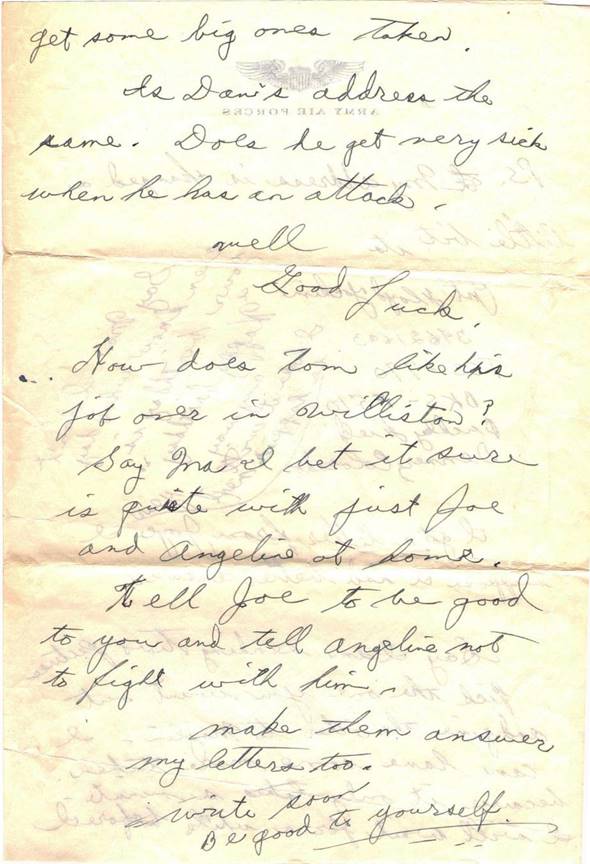 get some big ones taken.
ARMY AIR FORCES
Is Dan's address the
same. Does he get very sick
when he has an attack.
well
Good Luck.
How does Tom like his
job over in Williston?
Say Ma I bet it sure
is quite with just Joe
and Angeline at home.
Tell Joe to be good
to you and tell angeline not
to fight with him.
make them answer
my letters too.
write soon
Be good to yourself.